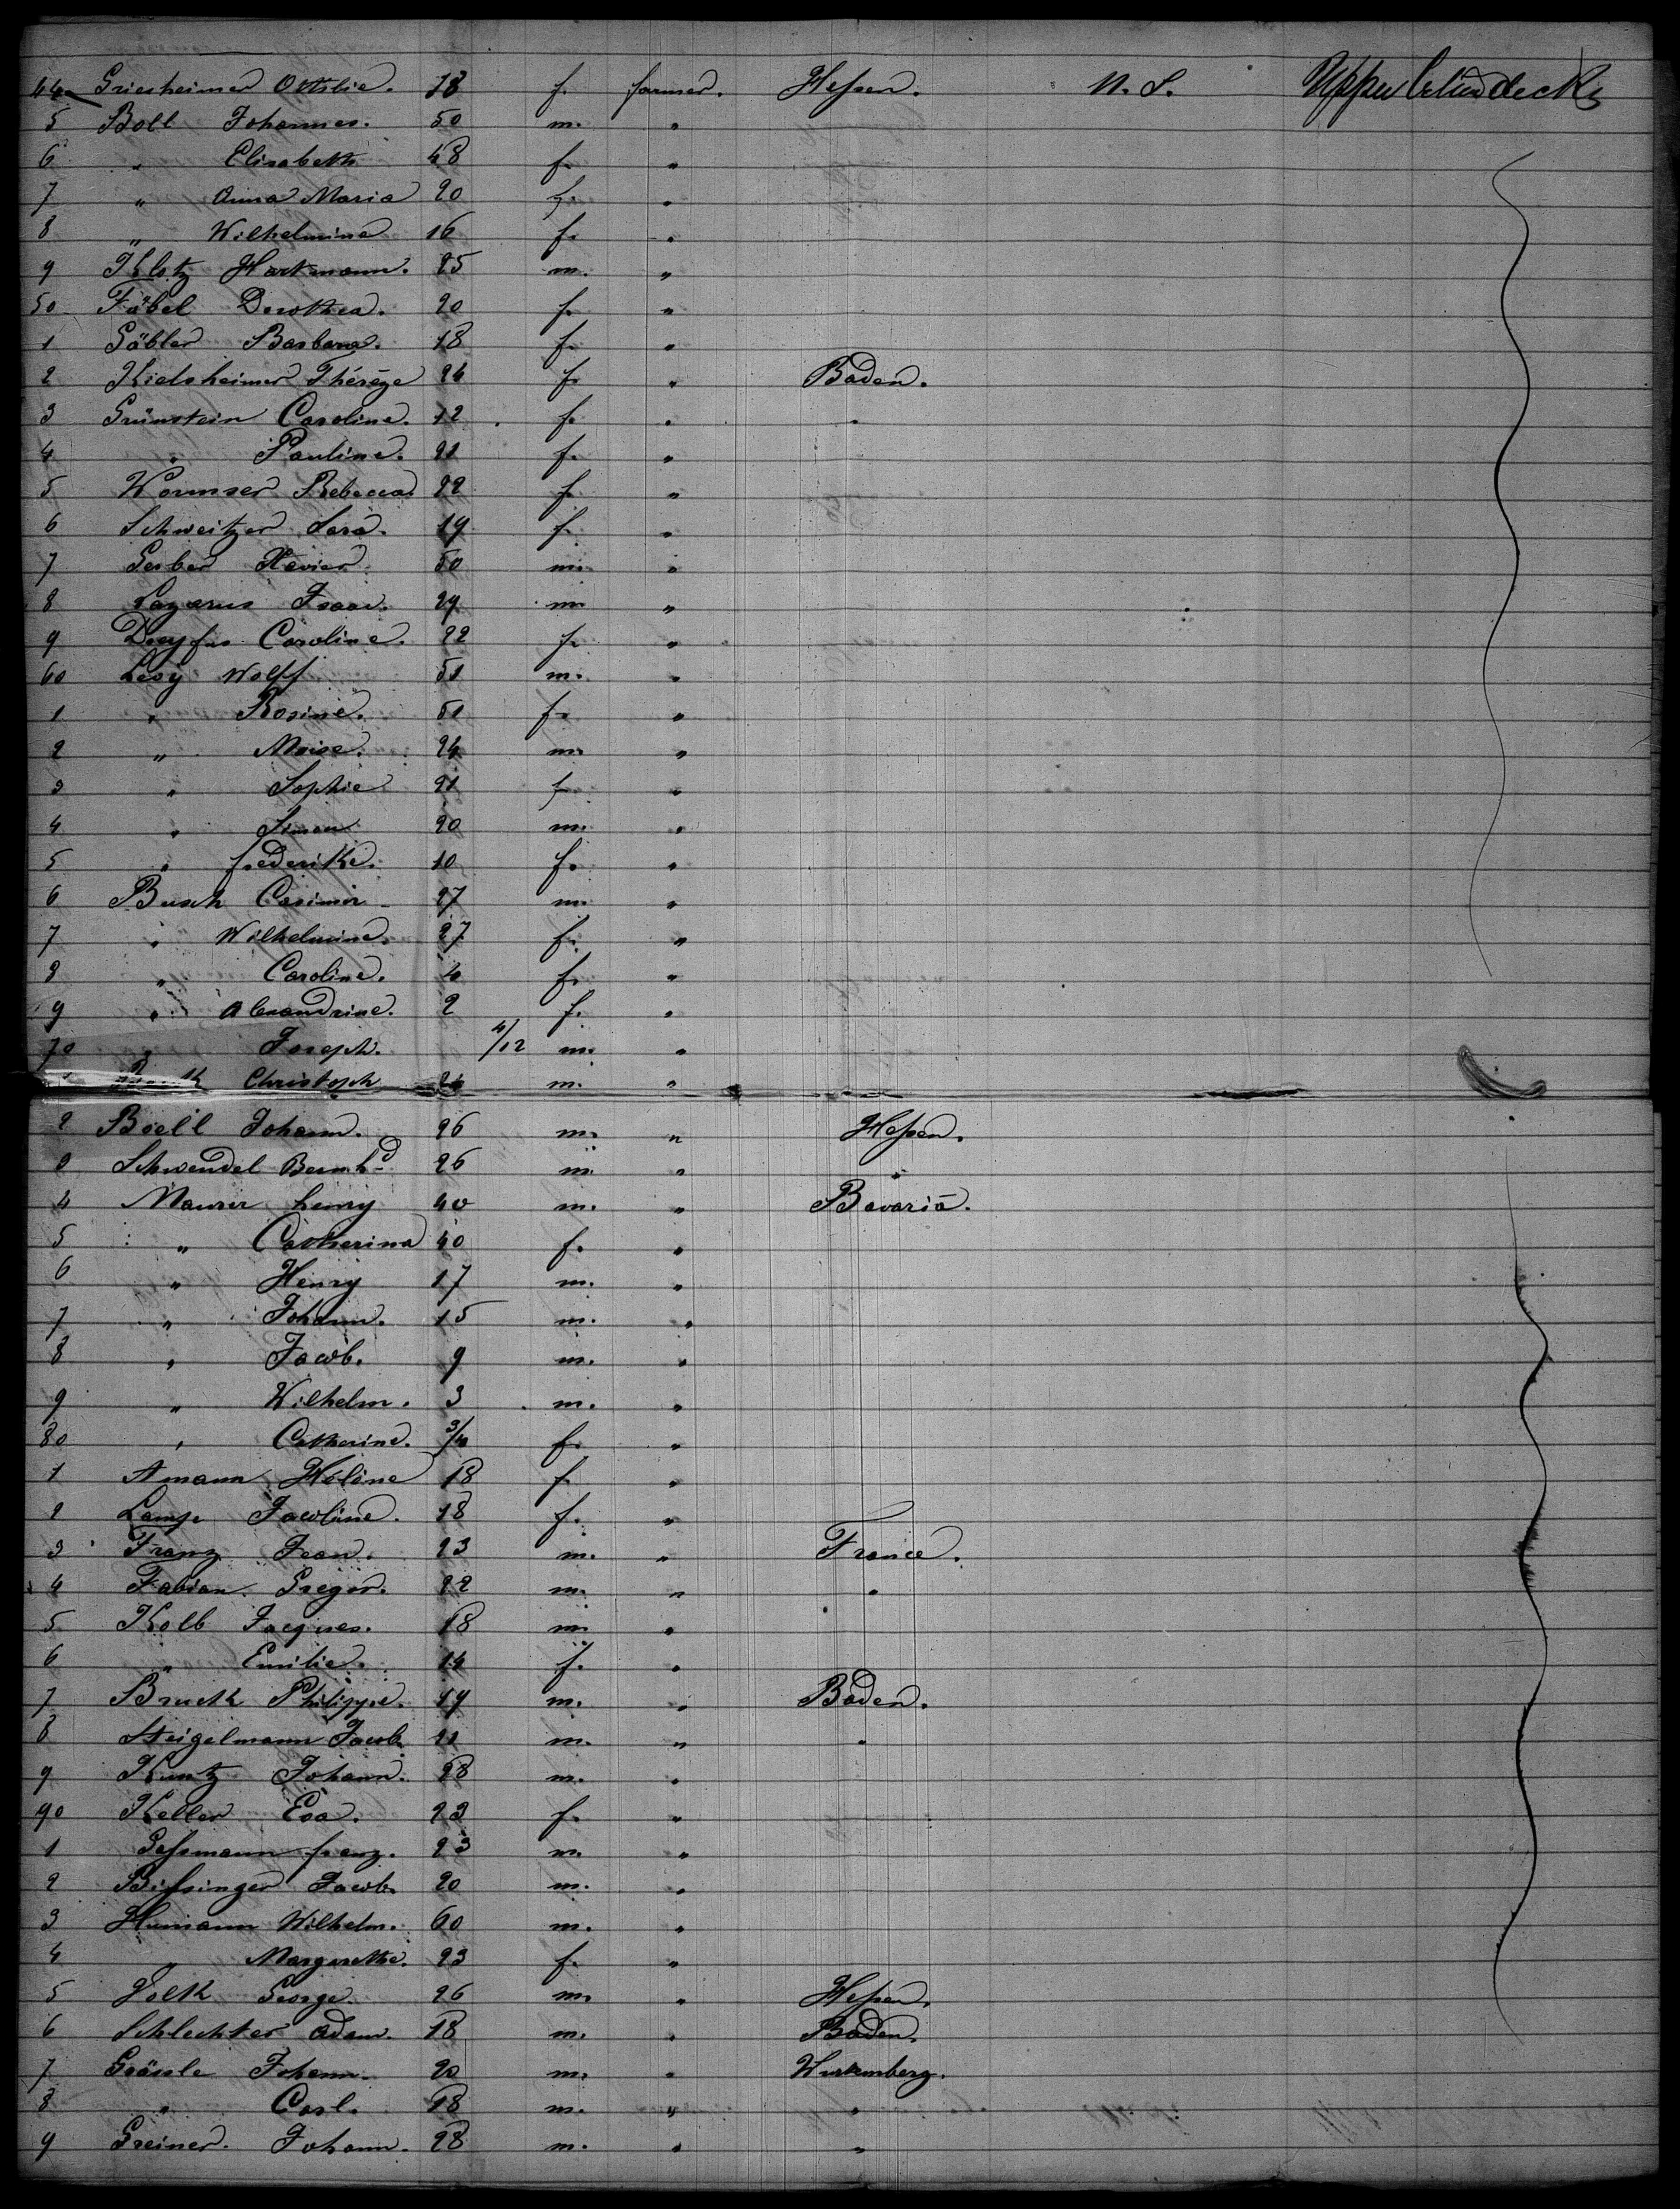 44 Griesheimer Ottilie. 18 f. farmer. Hessen. U. S. Upper deck
5 Boll Johannes. 50 m. "
6 " Elisabeth 48 f. "
7 " Anna Maria 20 f. "
8 " Wilhelmina 16 f. "
9 Klotz Hartmann. 25 m. "
50 Fäbel Dorothea. 20 f. "
1 Gäbler Barbara. 18 f. "
2 Kielsheimer Thérèze 24 f. " Baden.
3 Grünstein Caroline. 12 f. " "
4 " Pauline. 21 f. "
5 Wormser Rebecca. 22 f. "
6 Schweitzer Sara. 19 f. "
7 Gerber Xavier 50 m. "
8 Lazarus Isaac. 29 m. "
9 Dreyfus Caroline. 22 f. "
60 Levy Wolff 51 m. "
1 " Rosine. 51 f. "
2 " Moise. 24 m. "
3 " Sophie 21 f. "
4 " Simon 20 m. "
5 " frederike. 10 f. "
6 Busch Casimir 27 m. "
7 " Wilhelmine. 27 f. "
8 " Caroline. 4 f. "
9 " Alexandrine. 2 f. "
70 " Joseph. 4/12 m. "
Christoph 24 m. "
2 Biell Johann. 26 m. " Hessen.
3 Schwendel Bernhd 26 m. " "
4 Maurer henry 40 m. " Bavaria.
5 " Catherina 40 f. "
6 " Henry 17 m. "
7 " Johann. 15 m. "
8 " Jacob. 9 m. "
9 " Wilhelm. 3 m. "
80 " Catherine. 3/4 f. "
1 Amann Hélène 18 f. "
2 Lampe Jacobine. 18 f. "
3 Franz Jean. 23 m. " France.
4 Fabian Gregor. 22 m. " "
5 Kolb Jacques. 18 m. "
6 " Emilie. 14 f. "
7 Bruck Philippe. 19 m. " Baden.
8 Steigelmann Jacob 21 m. " "
9 Kuntz Johann. 28 m. "
90 Keller Eva. 23 f. "
1 Gessmann franz. 23 m. "
2 Bissinger Jacob 20 m. "
3 Humann Wilhelm. 60 m. "
4 " Margarethe. 23 f. "
5 Volk George. 26 m. " Hessen.
6 Schlechter Adam. 18 m. " Baden.
7 Grässle Johann. 20 m. " Wurtemberg.
8 " Carl. 18 m. " "
9 Greiner. Johann. 28 m. " "